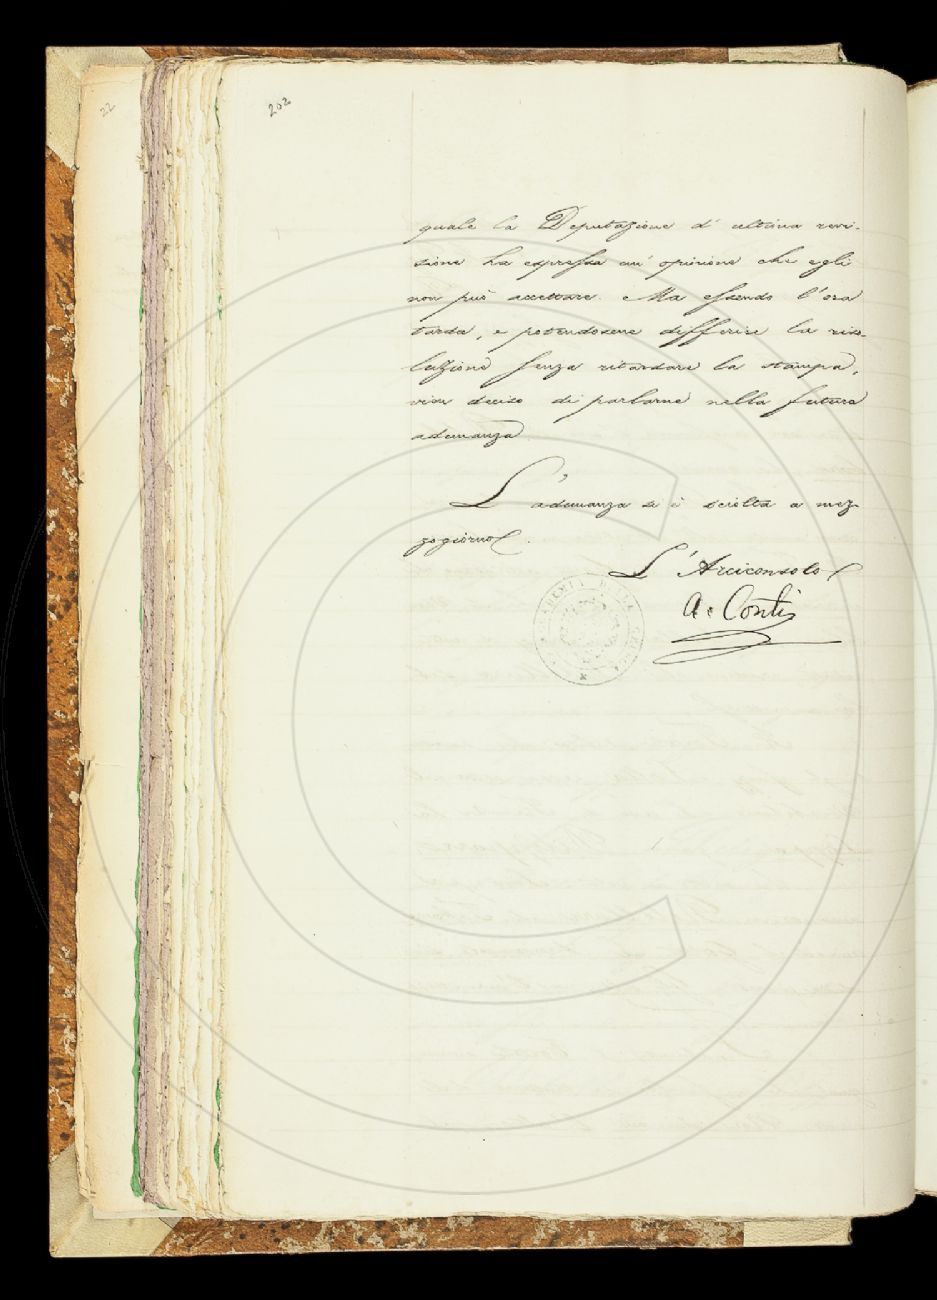 22
202
quale la Deputazione d'ultima revi-
sione ha espressa un'opinione che egli
non può accettare. Ma essendo l'ora
tarda, e potendosene differire la riso-
luzione senza ritardare la stampa,
vien deciso di parlarne nella futura
adunanza.
L'adunanza si è sciolta a mez-
zogiorno.
L'Arciconsolo
A. Conti